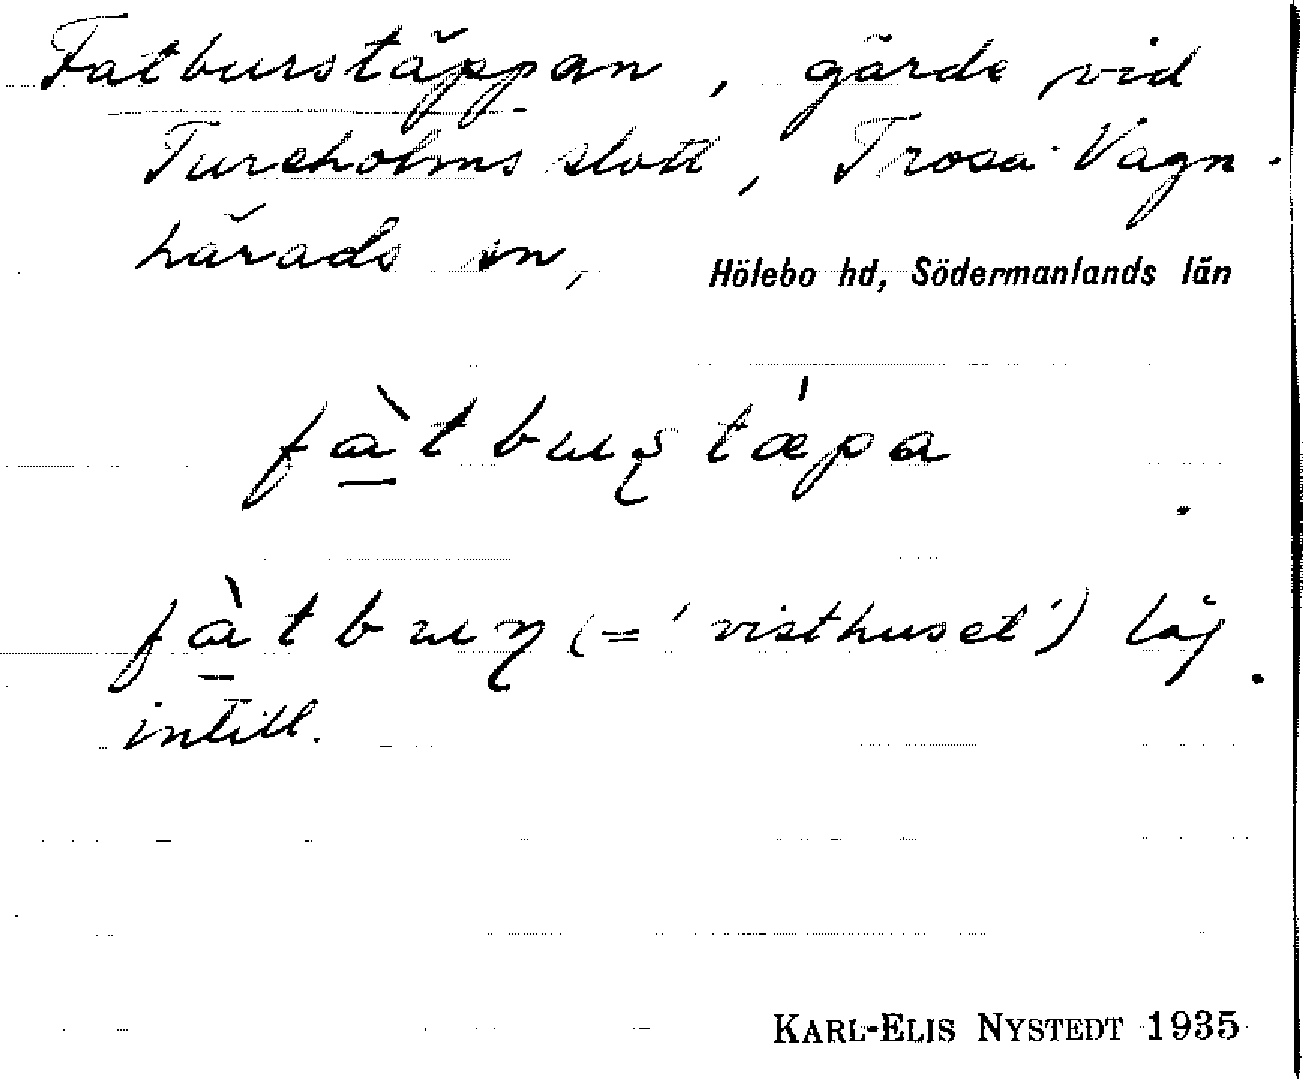 Fatburstäppan, gärde vid
Tureholms slott, Trosa-Vagn-
härads sn, Hölebo hd, Södermanlands län
fàtbuʂtǽpa
fàtbuɳ (= 'visthuset') låg
intill.
KARL-ELIS NYSTEDT 1935